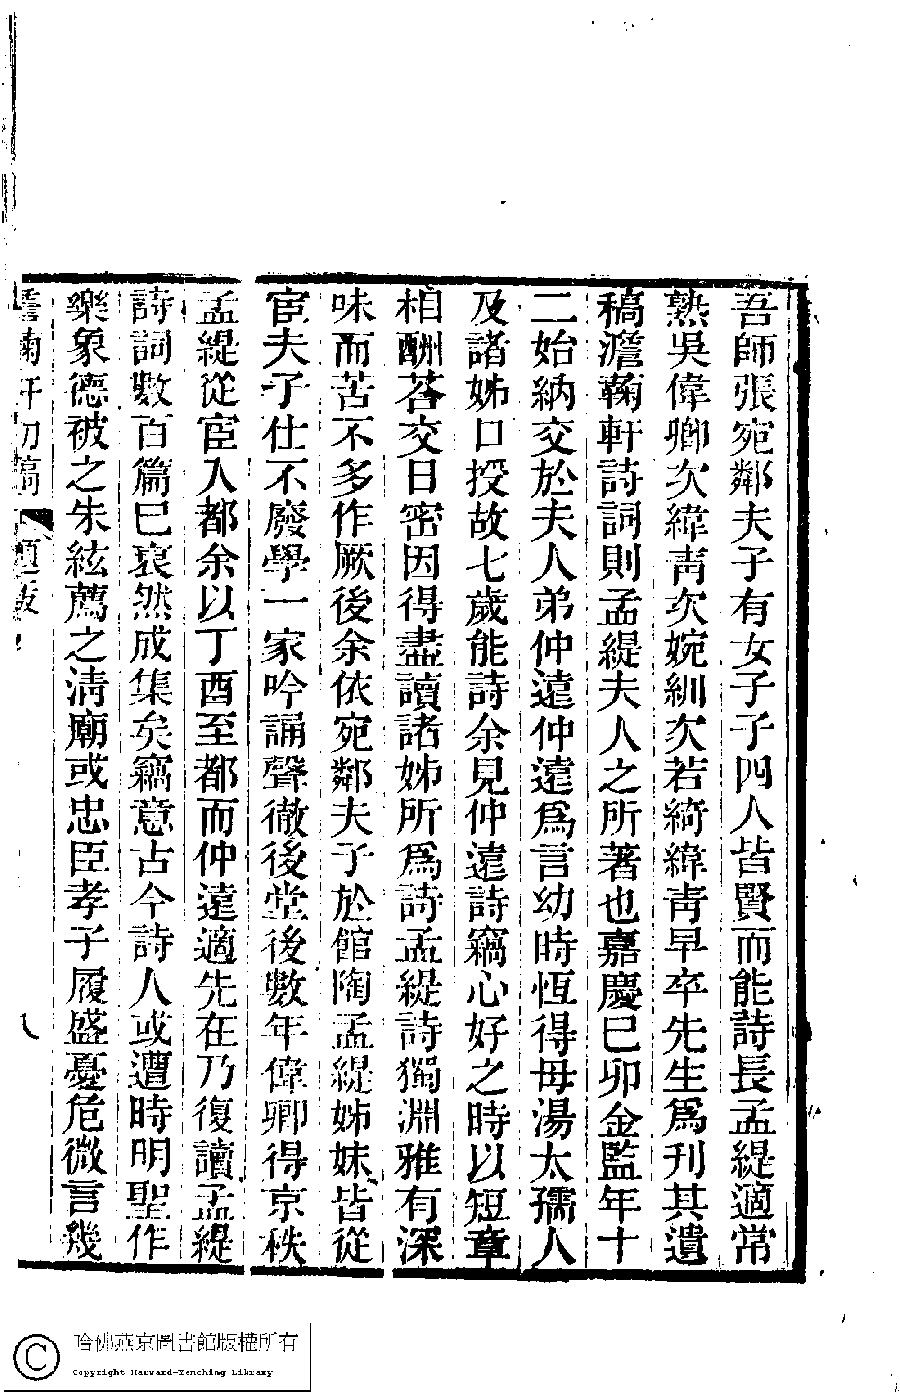 吾師張宛鄰夫子有女子子四人皆賢而能詩長孟緹適常
熟吳偉卿次緯青次婉紃次若綺緯青早卒先生爲刋其遺
稿澹蘜軒詩詞則孟緹夫人之所著也嘉慶巳卯金監年十
二始納交於夫人弟仲遠仲遠爲言幼時恆得母湯太孺人
及諸姊口授故七歲能詩余見仲遠詩竊心好之時以短章
相酬荅交日密因得盡讀諸姊所爲詩孟緹詩獨淵雅有深
味而苦不多作厥後余依宛鄰夫子於館陶孟緹姊妹皆從
宦夫子仕不廢學一家吟誦聲徹後堂後數年偉卿得京秩
孟緹從宦入都余以丁酉至都而仲遠適先在乃復讀孟緹
詩詞數百篇巳裒然成集矣竊意古今詩人或遭時明聖作
樂象德被之朱絃薦之淸廟或忠臣孝子履盛憂危微言幾
蘜軒初稿 題
哈佛燕京圖書館版權所有
Copyright Harvard-Yenching Library